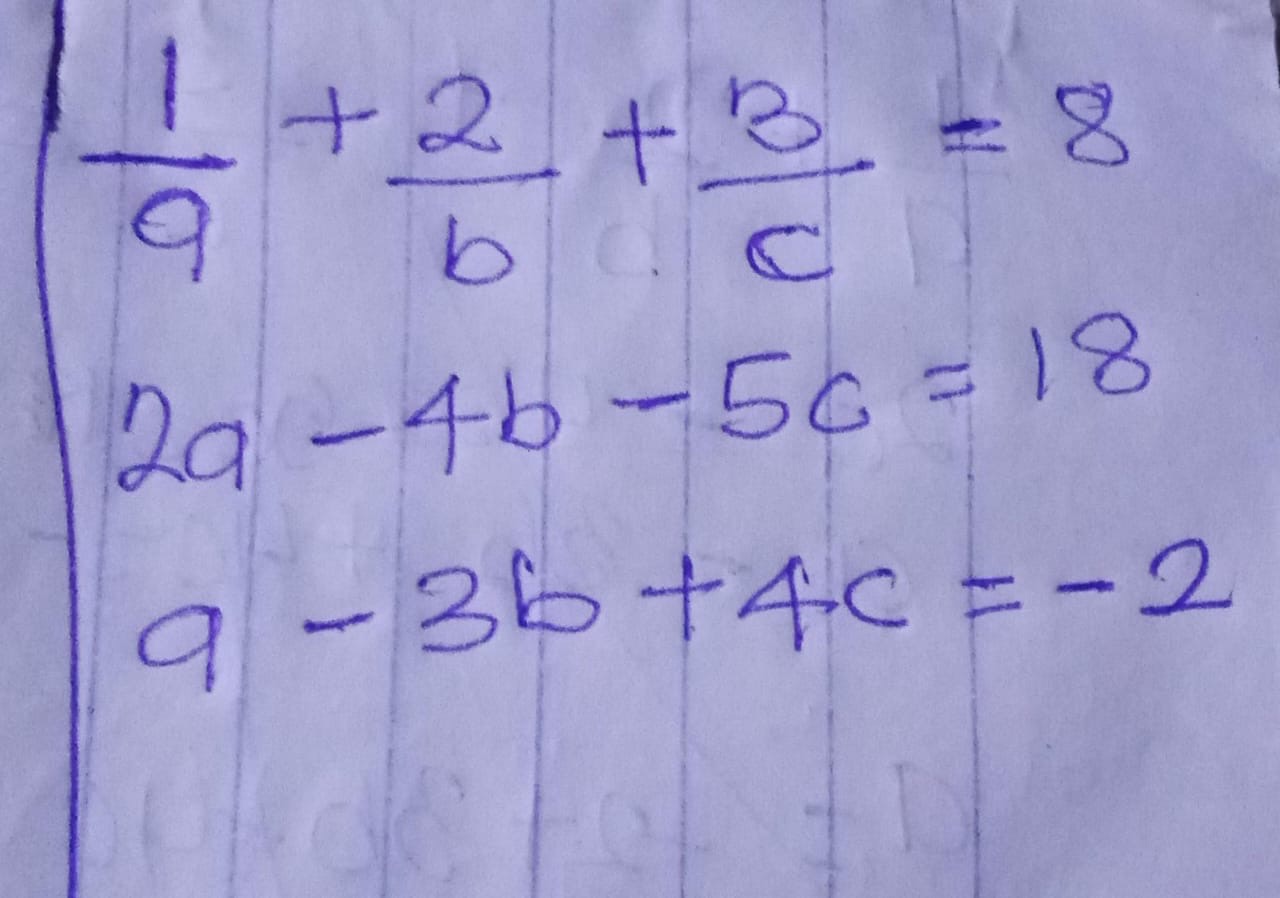 1/a + 2/b + 3/c = 8
2a - 4b - 5c = 18
a - 3b + 4c = -2